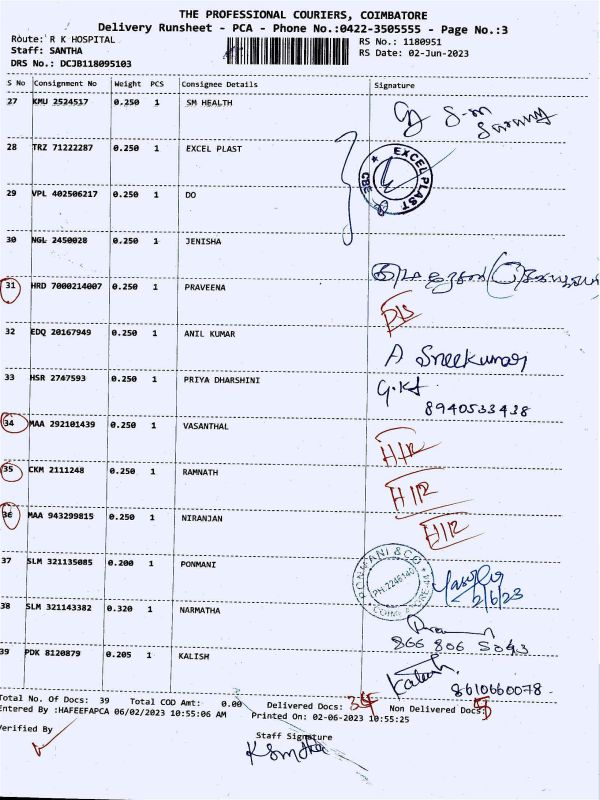 THE PROFESSIONAL COURIERS, COIMBATORE
Delivery Runsheet - PCA - Phone No.:0422-3505555 - Page No.:3
Route: R K HOSPITAL
RS No.: 1180951
Staff: SANTHA
RS Date: 02-Jun-2023
DRS No.: DCJB118095103
S No Consignment No Weight PCS Consignee Details Signature
27 KMU 2524517 0.250 1 SM HEALTH
28 TRZ 71222287 0.250 1 EXCEL PLAST
EXCEL PLAST
CBE
29 VPL 402506217 0.250 1 DO
30 NGL 2450028 0.250 1 JENISHA
31 HRD 7000214007 0.250 1 PRAVEENA
32 EDQ 20167949 0.250 1 ANIL KUMAR A Sreekumar
33 HSR 2747593 0.250 1 PRIYA DHARSHINI
8940533438
34 MAA 292101439 0.250 1 VASANTHAL
35 CKM 2111248 0.250 1 RAMNATH
36 MAA 943299815 0.250 1 NIRANJAN
37 SLM 321135085 0.200 1 PONMANI
PONMANI & CO
2/6/23
38 SLM 321143382 0.320 1 NARMATHA
39 PDK 8120879 0.205 1 KALISH
8610660078
Total No. Of Docs: 39 Total COD Amt: 0.00 Delivered Docs: 34 Non Delivered Docs:
Entered By :HAFEEFAPCA 06/02/2023 10:55:06 AM Printed On: 02-06-2023 10:55:25
Verified By
Staff Signature